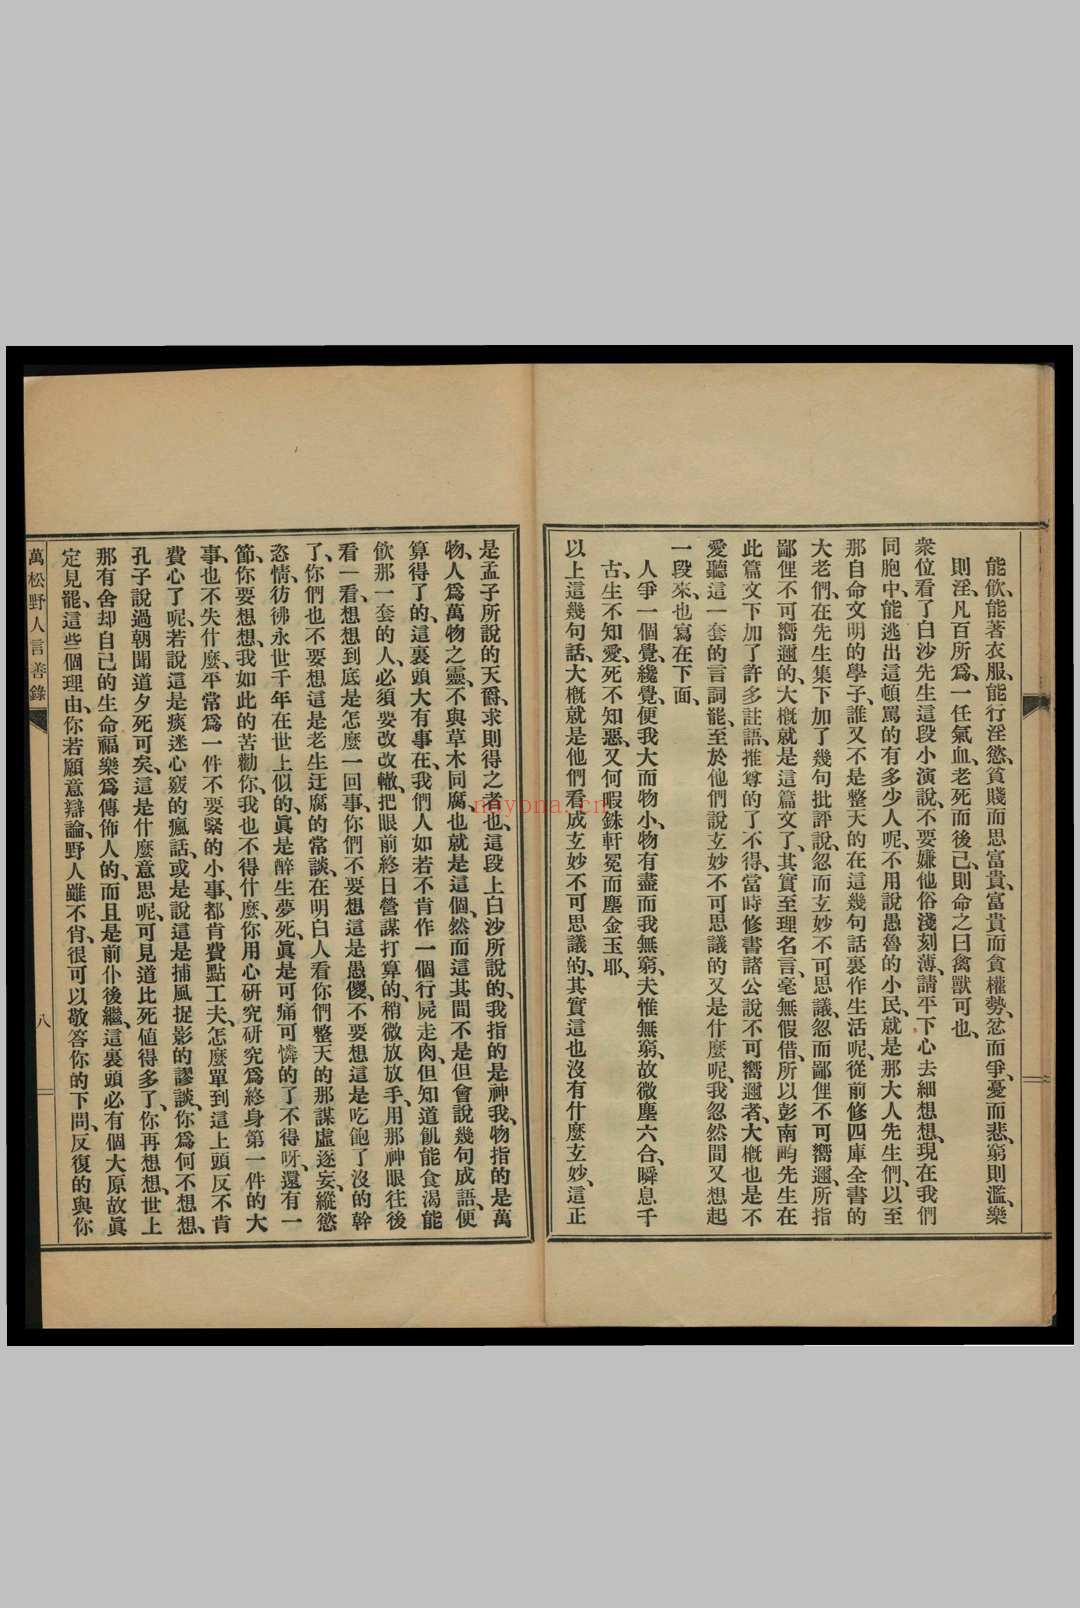 能飲、能著衣服、能行淫慾、貧賤而思富貴、富貴而貪權勢、忿而爭、憂而悲、窮則濫、樂
則淫、凡百所爲、一任氣血、老死而後已、則命之曰禽獸可也、
衆位看了白沙先生這段小演說、不要嫌他俗淺刻薄、請平下心去細想想、現在我們
同胞中、能逃出這頓罵的有多少人呢、不用說愚魯的小民、就是那大人先生們、以至
那自命文明的學子、誰又不是整天的在這幾句話裏作生活呢、從前修四庫全書的
大老們、在先生集下加了幾句批評說、忽而玄妙不可思議、忽而鄙俚不可嚮邇、所指
鄙俚不可嚮邇的、大槪就是這篇文了、其實至理名言、毫無假借、所以彭南畇先生在
此篇文下加了許多註語、推尊的了不得、當時修書諸公說不可嚮邇者、大槪也是不
愛聽這一套的言詞罷、至於他們說玄妙不可思議的又是什麼呢、我忽然間又想起
一段來、也寫在下面、
人爭一個覺、纔覺、便我大而物小、物有盡而我無窮、夫惟無窮、故微塵六合、瞬息千
古、生不知愛、死不知惡、又何暇銖軒冕而塵金玉耶、
以上這幾句話、大槪就是他們看成玄妙不可思議的、其實這也沒有什麼玄妙、這正
是孟子所說的天爵、求則得之者也、這段上白沙所說的、我指的是神我、物指的是萬
物、人爲萬物之靈、不與草木同腐、也就是這個、然而這其間不是但會說幾句成語、便
算得了的、這裏頭大有事在、我們人如若不肯作一個行屍走肉、但知道飢能食渴能
飲那一套的人、必須要改改轍、把眼前終日營謀打算的、稍微放放手、用那神眼往後
看一看、想想到底是怎麼一回事、你們不要想這是愚儍、不要想這是吃飽了沒的幹
了、你們也不要想這是老生迂腐的常談、在明白人看你們整天的那謀虛逐妄、縱慾
恣情、彷彿永世千年在世上似的、眞是醉生夢死、眞是可痛可憐的了不得呀、還有一
節、你要想想、我如此的苦勸你、我也不得什麼、你用心硏究硏究爲終身第一件的大
事、也不失什麼、平常爲一件不要緊的小事、都肯費點工夫、怎麼單到這上頭反不肯
費心了呢、若說這是痰迷心竅的瘋話、或是說這是捕風捉影的謬談、你爲何不想想、
孔子說過朝聞道夕死可矣、這是什麼意思呢、可見道比死値得多了、你再想想、世上
那有舍却自已的生命福樂爲傳佈人的、而且是前仆後繼、這裏頭必有個大原故眞
定見罷、這些個理由、你若願意辯論、野人雖不肖、很可以敬答你的下問、反復的與你
萬松野人言善錄
八
nayona.cn